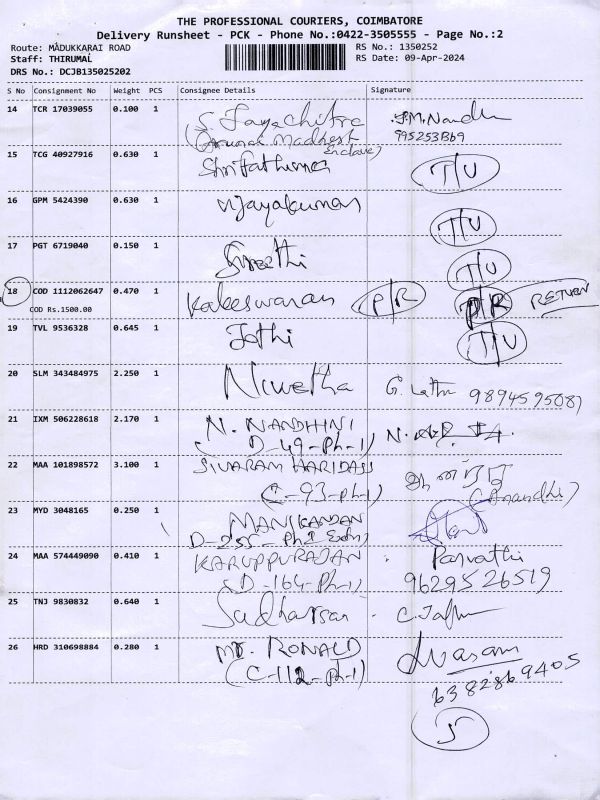 THE PROFESSIONAL COURIERS, COIMBATORE
Delivery Runsheet - PCK - Phone No.:0422-3505555 - Page No.:2
Route: MADUKKARAI ROAD
RS No.: 1350252
Staff: THIRUMAL
RS Date: 09-Apr-2024
DRS No.: DCJB135025202
S No Consignment No Weight PCS Consignee Details Signature
14 TCR 17039055 0.100 1 S. Jayachitra J.M. Nandh
Enclave)
15 TCG 40927916 0.630 1 Shrifathima T/U
16 GPM 5424390 0.630 1 Vijayakumar T/U
17 PGT 6719040 0.150 1 Sreethi T/U
18 COD 1112062647 0.470 1 Kaleeswaran P/R P/R RETURN
COD Rs.1500.00
19 TVL 9536328 0.645 1 Jothi T/U
20 SLM 343484975 2.250 1 Nivetha G. 9894595087
21 IXM 506228618 2.170 1 N. NANDHINI
(D-49-Ph-1)
22 MAA 101898572 3.100 1 SIVARAM HARIDASS
(C-93-Ph-1) (Anandhi)
23 MYD 3048165 0.250 1 MANIKANDAN
24 MAA 574449090 0.410 1 KARUPPURAJAN Parvathi
(D-164-Ph-1) 9629526519
25 TNJ 9830832 0.640 1 Sudharsan
26 HRD 310698884 0.280 1 Mr. RONALD
(C-112-Ph-1) 6382869405
5